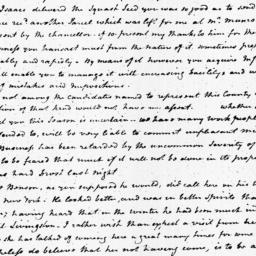 Isaac delivered the Squash Seed you was so good as to send
also another Parcel which was left for me at Mr Munro
sent by the chancellor. I so present my thanks to him for the
business you transact must from the nature of it sometimes prop
ably and rapidly. By means of it however you acquire
will enable you to manage it with increasing facility and
of mistakes and Imposition.
not among the Candidates named to represent this County
tion of that kind would not have me absent. whether
you this Season is uncertain. we have many work people
tended to, will be very liable to commit unpleasant
Business has been retarded by the uncommon severity of
to be feared that much of it will not be even in its prope
a hard frost last night
Benson, as you supposed he would, did call here on his
New York. He looked better, and was in better Spirits tha
having heard that in the winter he had been much in
Livingston. I rather wish than expect a visit from her
she has talked of coming here a great many times for one
believes that her not having come, is to be a